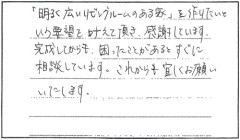 「明るく広いリビングルームのある家」を作りたいと
いう要望を叶えて頂き、感謝しています。
完成してからも、困ったことがあるとすぐに
相談しています。これからも宜しくお願い
いたします。